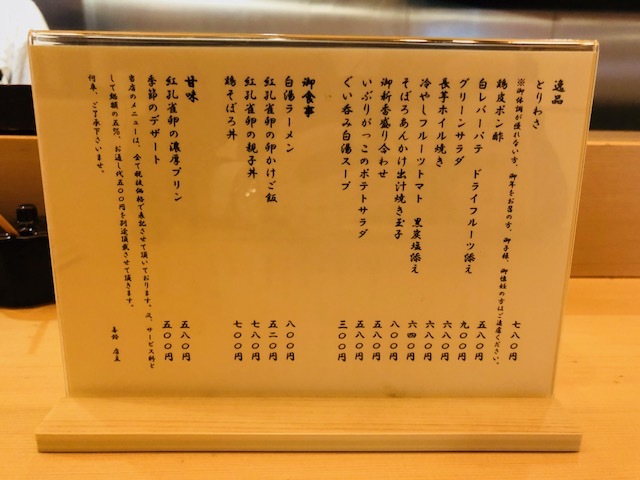 逸品
とりわさ 七八〇円
※御体調が優れない方、御年をお召の方、御子様、御懐妊の方はご遠慮ください。
鶏皮ポン酢 五八〇円
白レバーパテ ドライフルーツ添え 九〇〇円
グリーンサラダ 六八〇円
長芋ホイル焼き 六八〇円
冷やしフルーツトマト 黒炭塩添え 六四〇円
そぼろあんかけ出汁焼き玉子 八〇〇円
御新香盛り合わせ 五八〇円
いぶりがっこのポテトサラダ 五八〇円
ぐい呑み白湯スープ 三〇〇円
御食事
白湯ラーメン 八〇〇円
紅孔雀卵の卵かけご飯 五二〇円
紅孔雀卵の親子丼 七八〇円
鶏そぼろ丼 七〇〇円
甘味
紅孔雀卵の濃厚プリン 五八〇円
季節のデザート 五〇〇円
当店のメニューは、全て税抜価格で表記させて頂いております。又、サービス料と
して総額の五%、お通し代五〇〇円を別途頂戴させて頂きます。
何卒、ご了承下さいませ。
店主